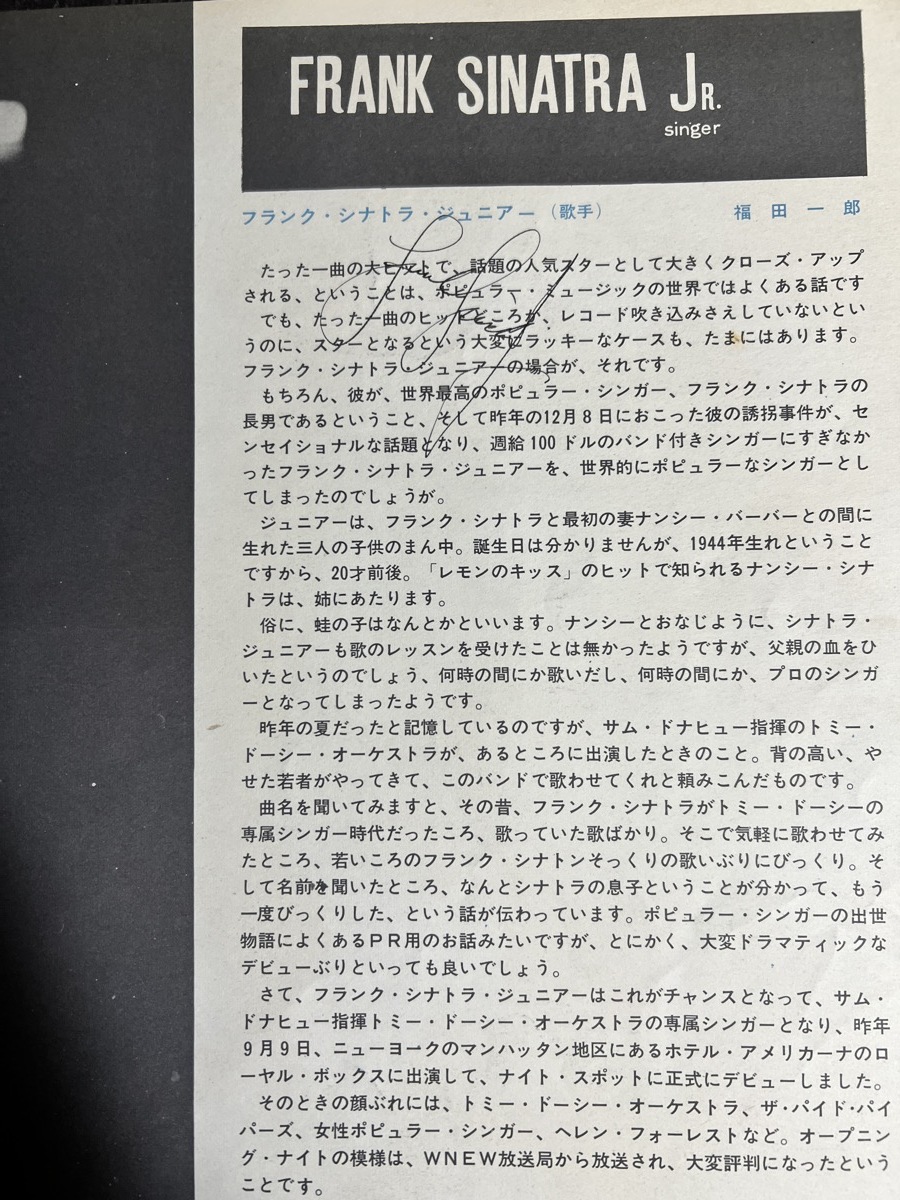 FRANK SINATRA JR.
singer
フランク・シナトラ・ジュニアー（歌手）
福田一郎
たった一曲の大ヒットで、話題の人気スターとして大きくクローズ・アップ
される、ということは、ポピュラー・ミュージックの世界ではよくある話です
でも、たった一曲のヒットどころか、レコード吹き込みさえしていないとい
うのに、スターとなるという大変にラッキーなケースも、たまにはあります。
フランク・シナトラ・ジュニアーの場合が、それです。
もちろん、彼が、世界最高のポピュラー・シンガー、フランク・シナトラの
長男であるということ、そして昨年の12月8日におこった彼の誘拐事件が、セ
ンセイショナルな話題となり、週給100ドルのバンド付きシンガーにすぎなか
ったフランク・シナトラ・ジュニアーを、世界的にポピュラーなシンガーとし
てしまったのでしょうが。
ジュニアーは、フランク・シナトラと最初の妻ナンシー・バーバーとの間に
生れた三人の子供のまん中。誕生日は分かりませんが、1944年生れということ
ですから、20才前後。「レモンのキッス」のヒットで知られるナンシー・シナ
トラは、姉にあたります。
俗に、蛙の子はなんとかといいます。ナンシーとおなじように、シナトラ・
ジュニアーも歌のレッスンを受けたことは無かったようですが、父親の血をひ
いたというのでしょう、何時の間にか歌いだし、何時の間にか、プロのシンガ
ーとなってしまったようです。
昨年の夏だったと記憶しているのですが、サム・ドナヒュー指揮のトミー・
ドーシー・オーケストラが、あるところに出演したときのこと。背の高い、や
せた若者がやってきて、このバンドで歌わせてくれと頼みこんだものです。
曲名を聞いてみますと、その昔、フランク・シナトラがトミー・ドーシーの
専属シンガー時代だったころ、歌っていた歌ばかり。そこで気軽に歌わせてみ
たところ、若いころのフランク・シナトンそっくりの歌いぶりにびっくり。そ
して名前を聞いたところ、なんとシナトラの息子ということが分かって、もう
一度びっくりした、という話が伝わっています。ポピュラー・シンガーの出世
物語によくあるPR用のお話みたいですが、とにかく、大変ドラマティックな
デビューぶりといっても良いでしょう。
さて、フランク・シナトラ・ジュニアーはこれがチャンスとなって、サム・
ドナヒュー指揮トミー・ドーシー・オーケストラの専属シンガーとなり、昨年
9月9日、ニューヨークのマンハッタン地区にあるホテル・アメリカーナのロ
ーヤル・ボックスに出演して、ナイト・スポットに正式にデビューしました。
そのときの顔ぶれには、トミー・ドーシー・オーケストラ、ザ・パイド・パイ
パーズ、女性ポピュラー・シンガー、ヘレン・フォーレストなど。オープニン
グ・ナイトの模様は、WNEW放送局から放送され、大変評判になったという
ことです。